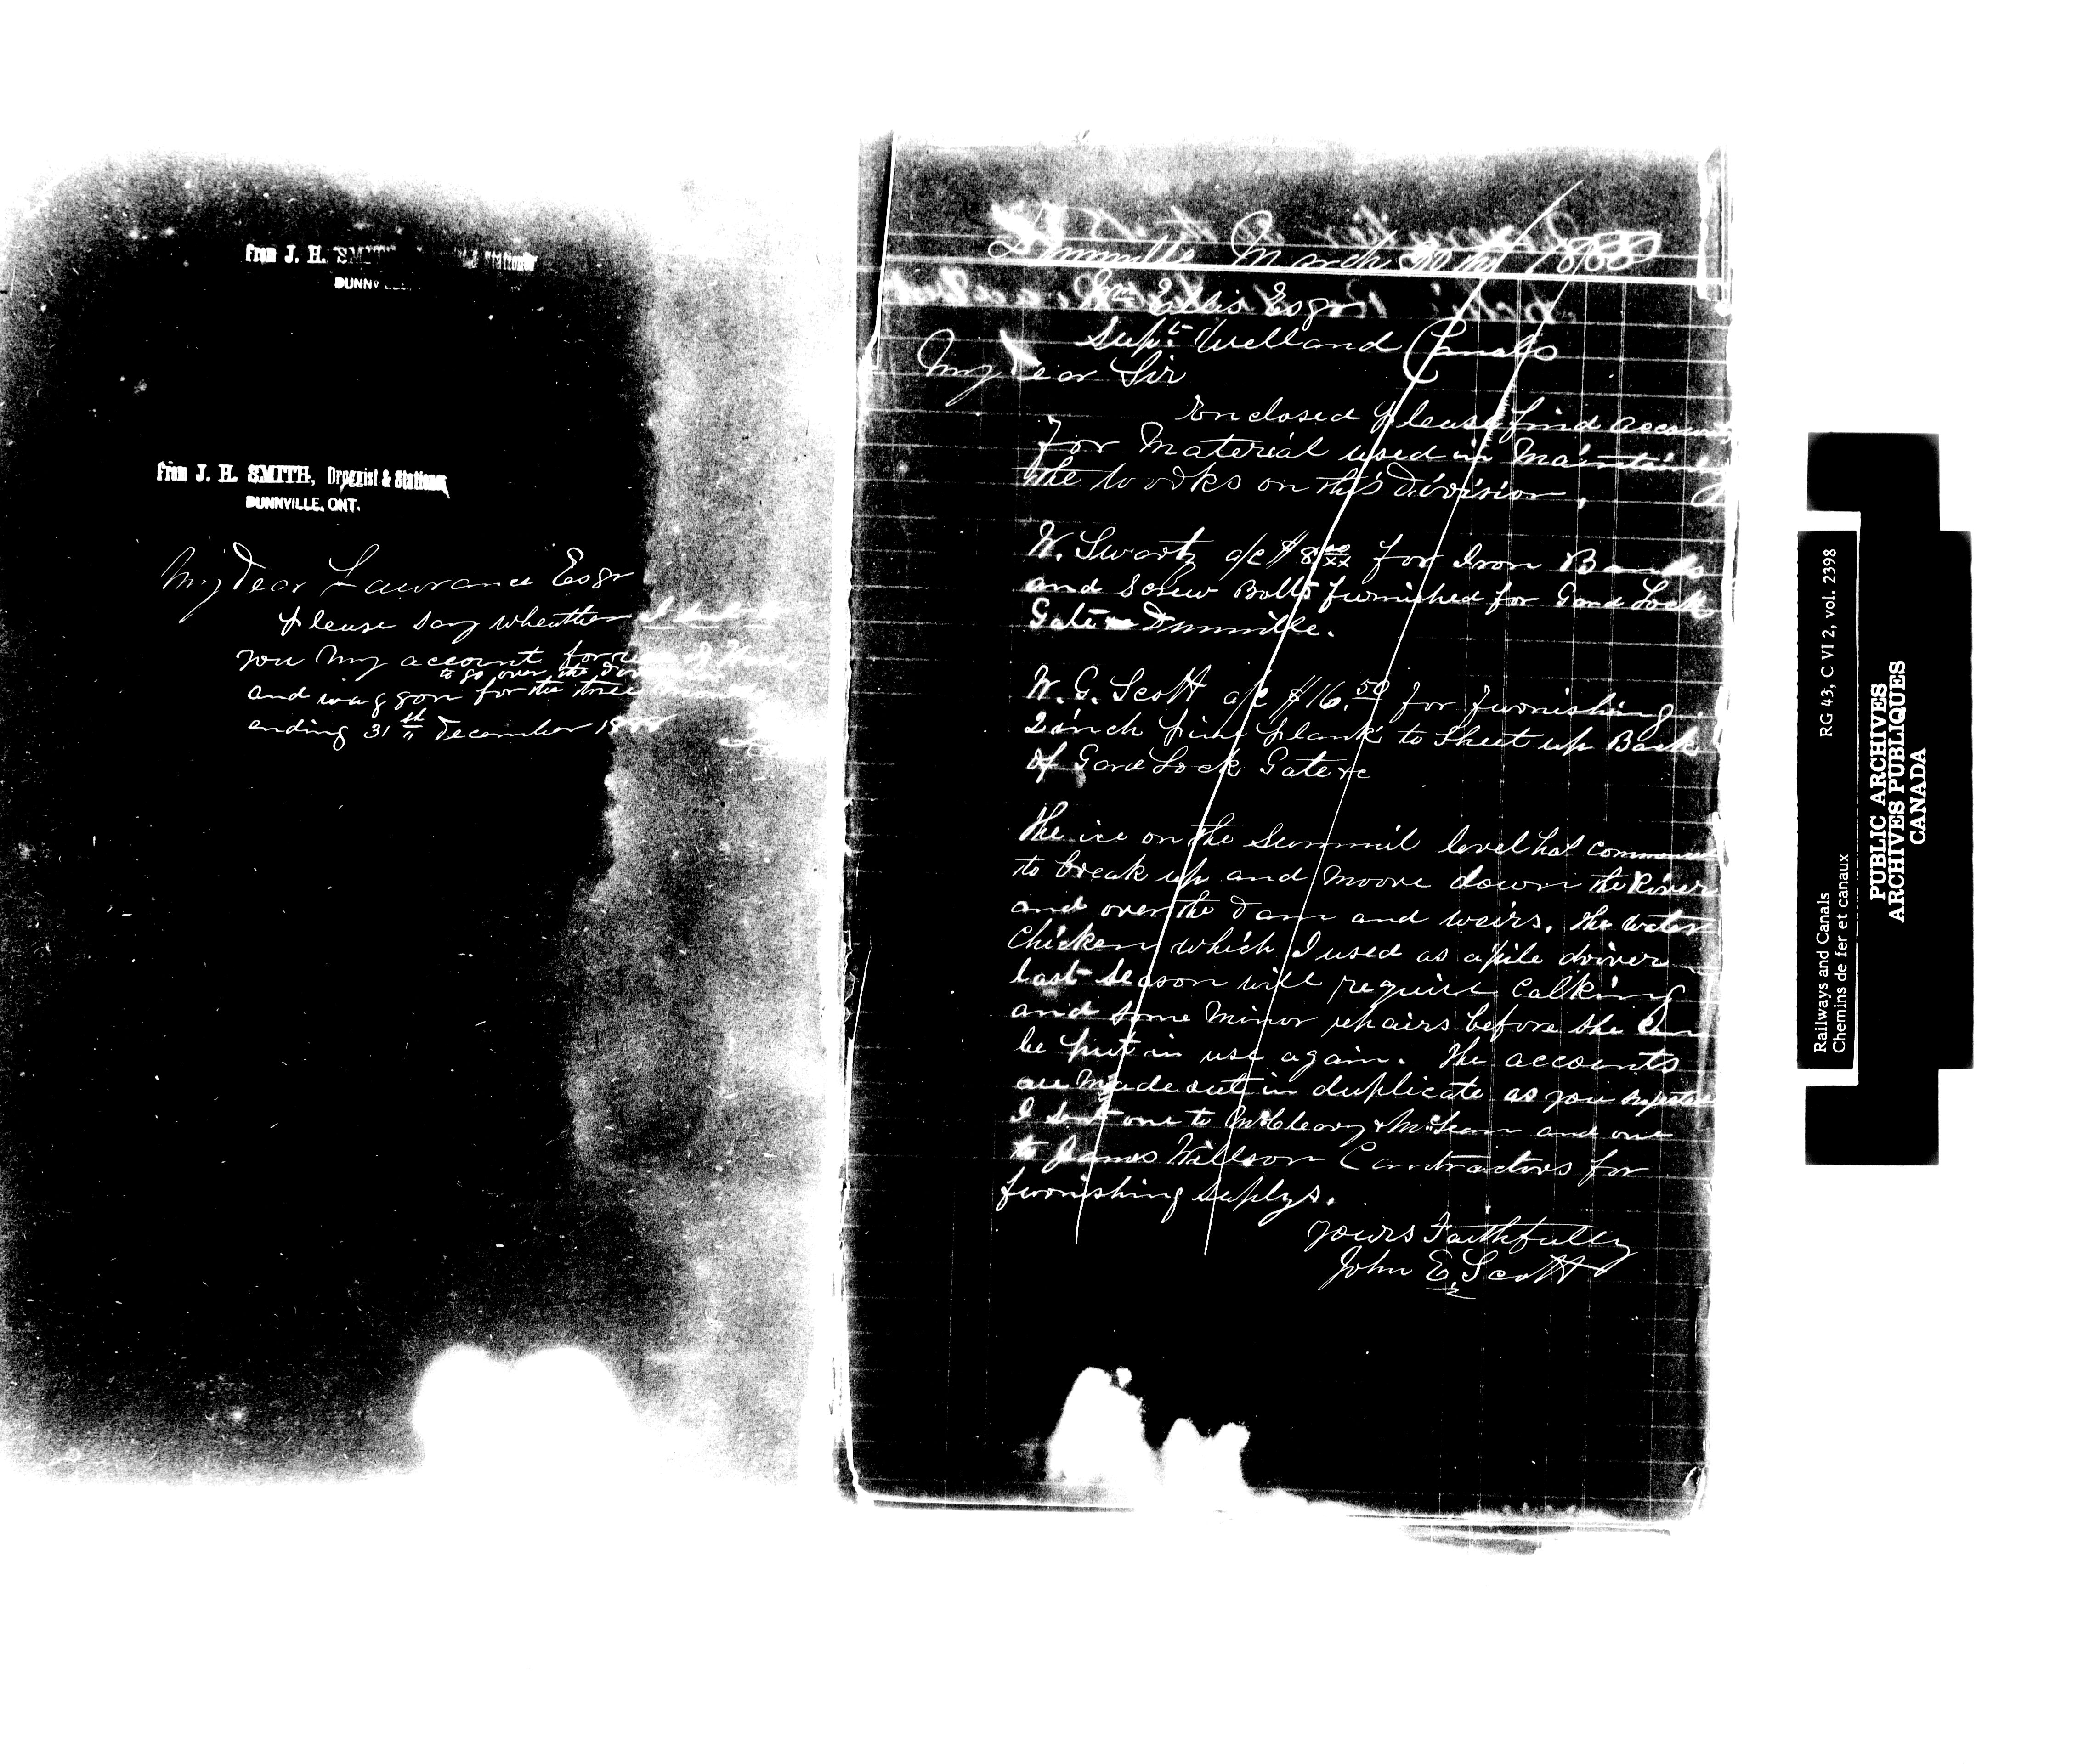 From J. H. SMITH
DUNNV
From J. H. SMITH, Druggist & Stationer,
DUNNVILLE, ONT.
My Dear Lawrance Esqr
please say wheather I
you my account for
to go over the
and waggon for the three
ending 31st December
Dunnville March 1888
Wm Ellis Esqr
Supt. Welland Canals
My Dear Sir
Enclosed please find account
For Material used in
the works on this division,
W. Swartz a/c $8 00/xx for Iron Bands
and screw Bolts furnished for Gard Lock
Gate Dunnville.
W. G. Scott a/c $16.50 for furnishing
2 inch pine plank to Sheet up Back
of Gard Lock Gate &c
The ice on the Summit level has
to break up and moove down the River
and over the Dam and weirs. The water
chicken which I used as a pile driver
last season will require Calking
and some Minor repairs before she can
be put in use again. The accounts
are made out in duplicate as you
I sent one to McCleary & McLean and one
to James Willson Contractors for
furnishing suplys.
yours Faithfully
John E. Scott
Railways and Canals RG 43, C VI 2, vol. 2398
Chemins de fer et canaux
PUBLIC ARCHIVES
ARCHIVES PUBLIQUES
CANADA